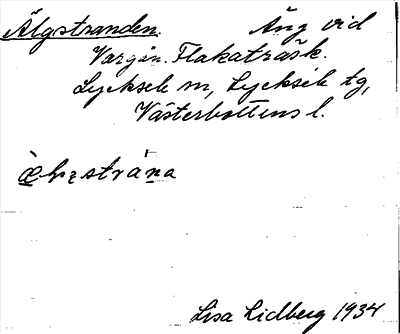 Älgstranden. Äng vid
Vargån. Flakaträsk.
Lycksele sn, Lycksele tg,
Västerbottens l.
Lisa Lidberg 1934